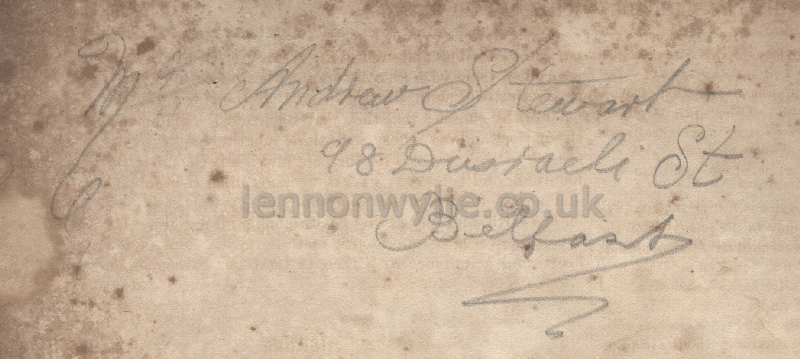 Mr Andrew Stewart
98 Dusraeli St
lennonwylie.co.uk
Belfast